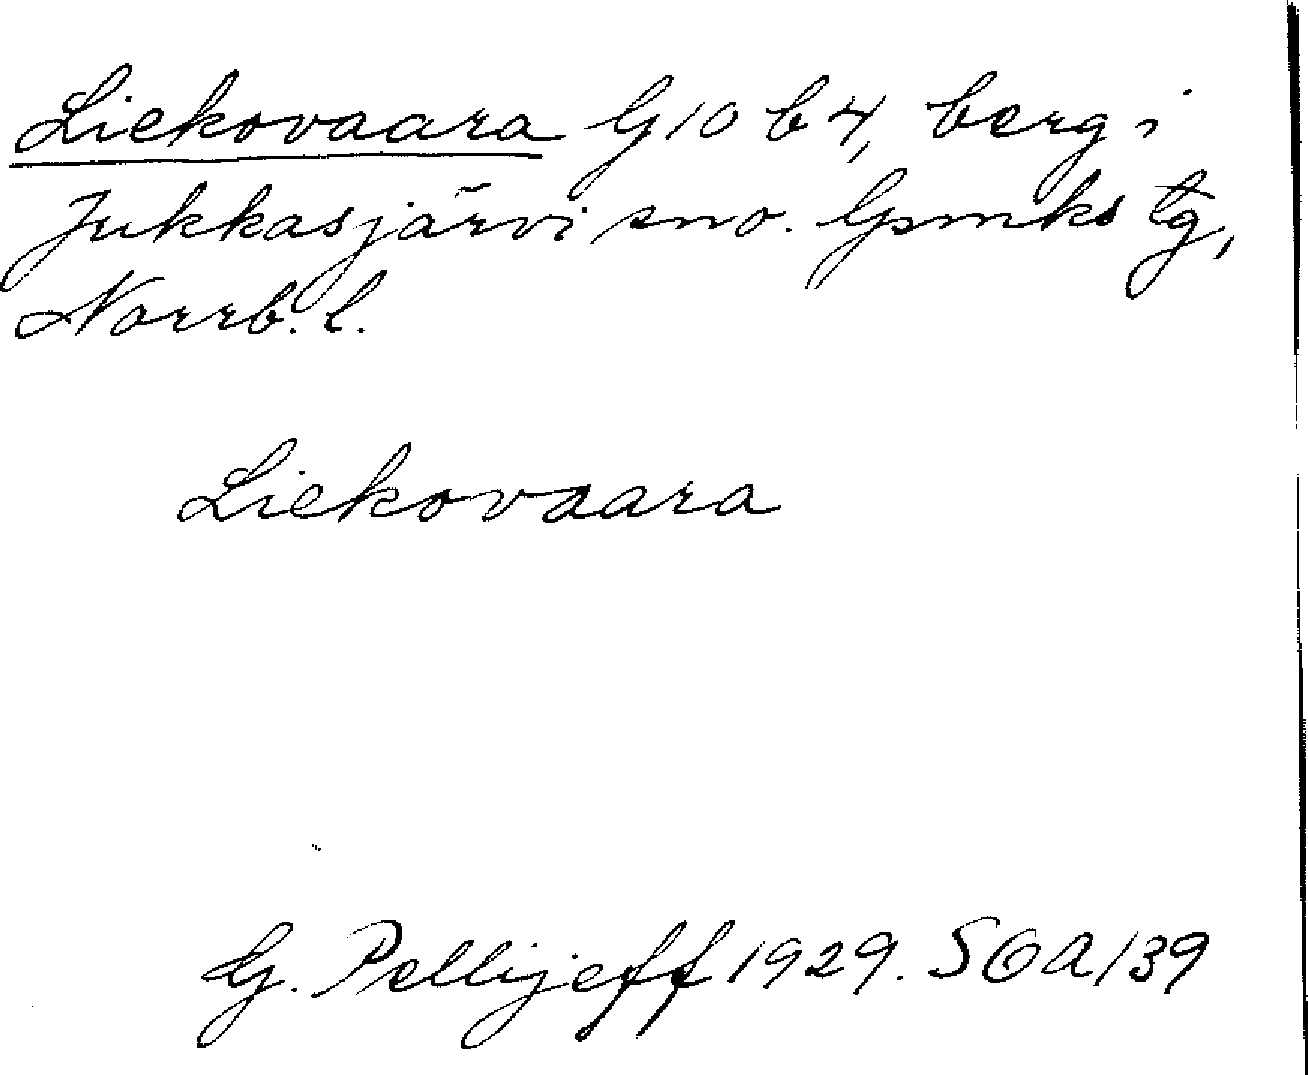 Liekovaara G 10 b 4, berg i
Jukkasjärvi sno. Gsmks tg,
Norrb. l.
Liekovaara
G. Pellijeff 1929. SOA/39